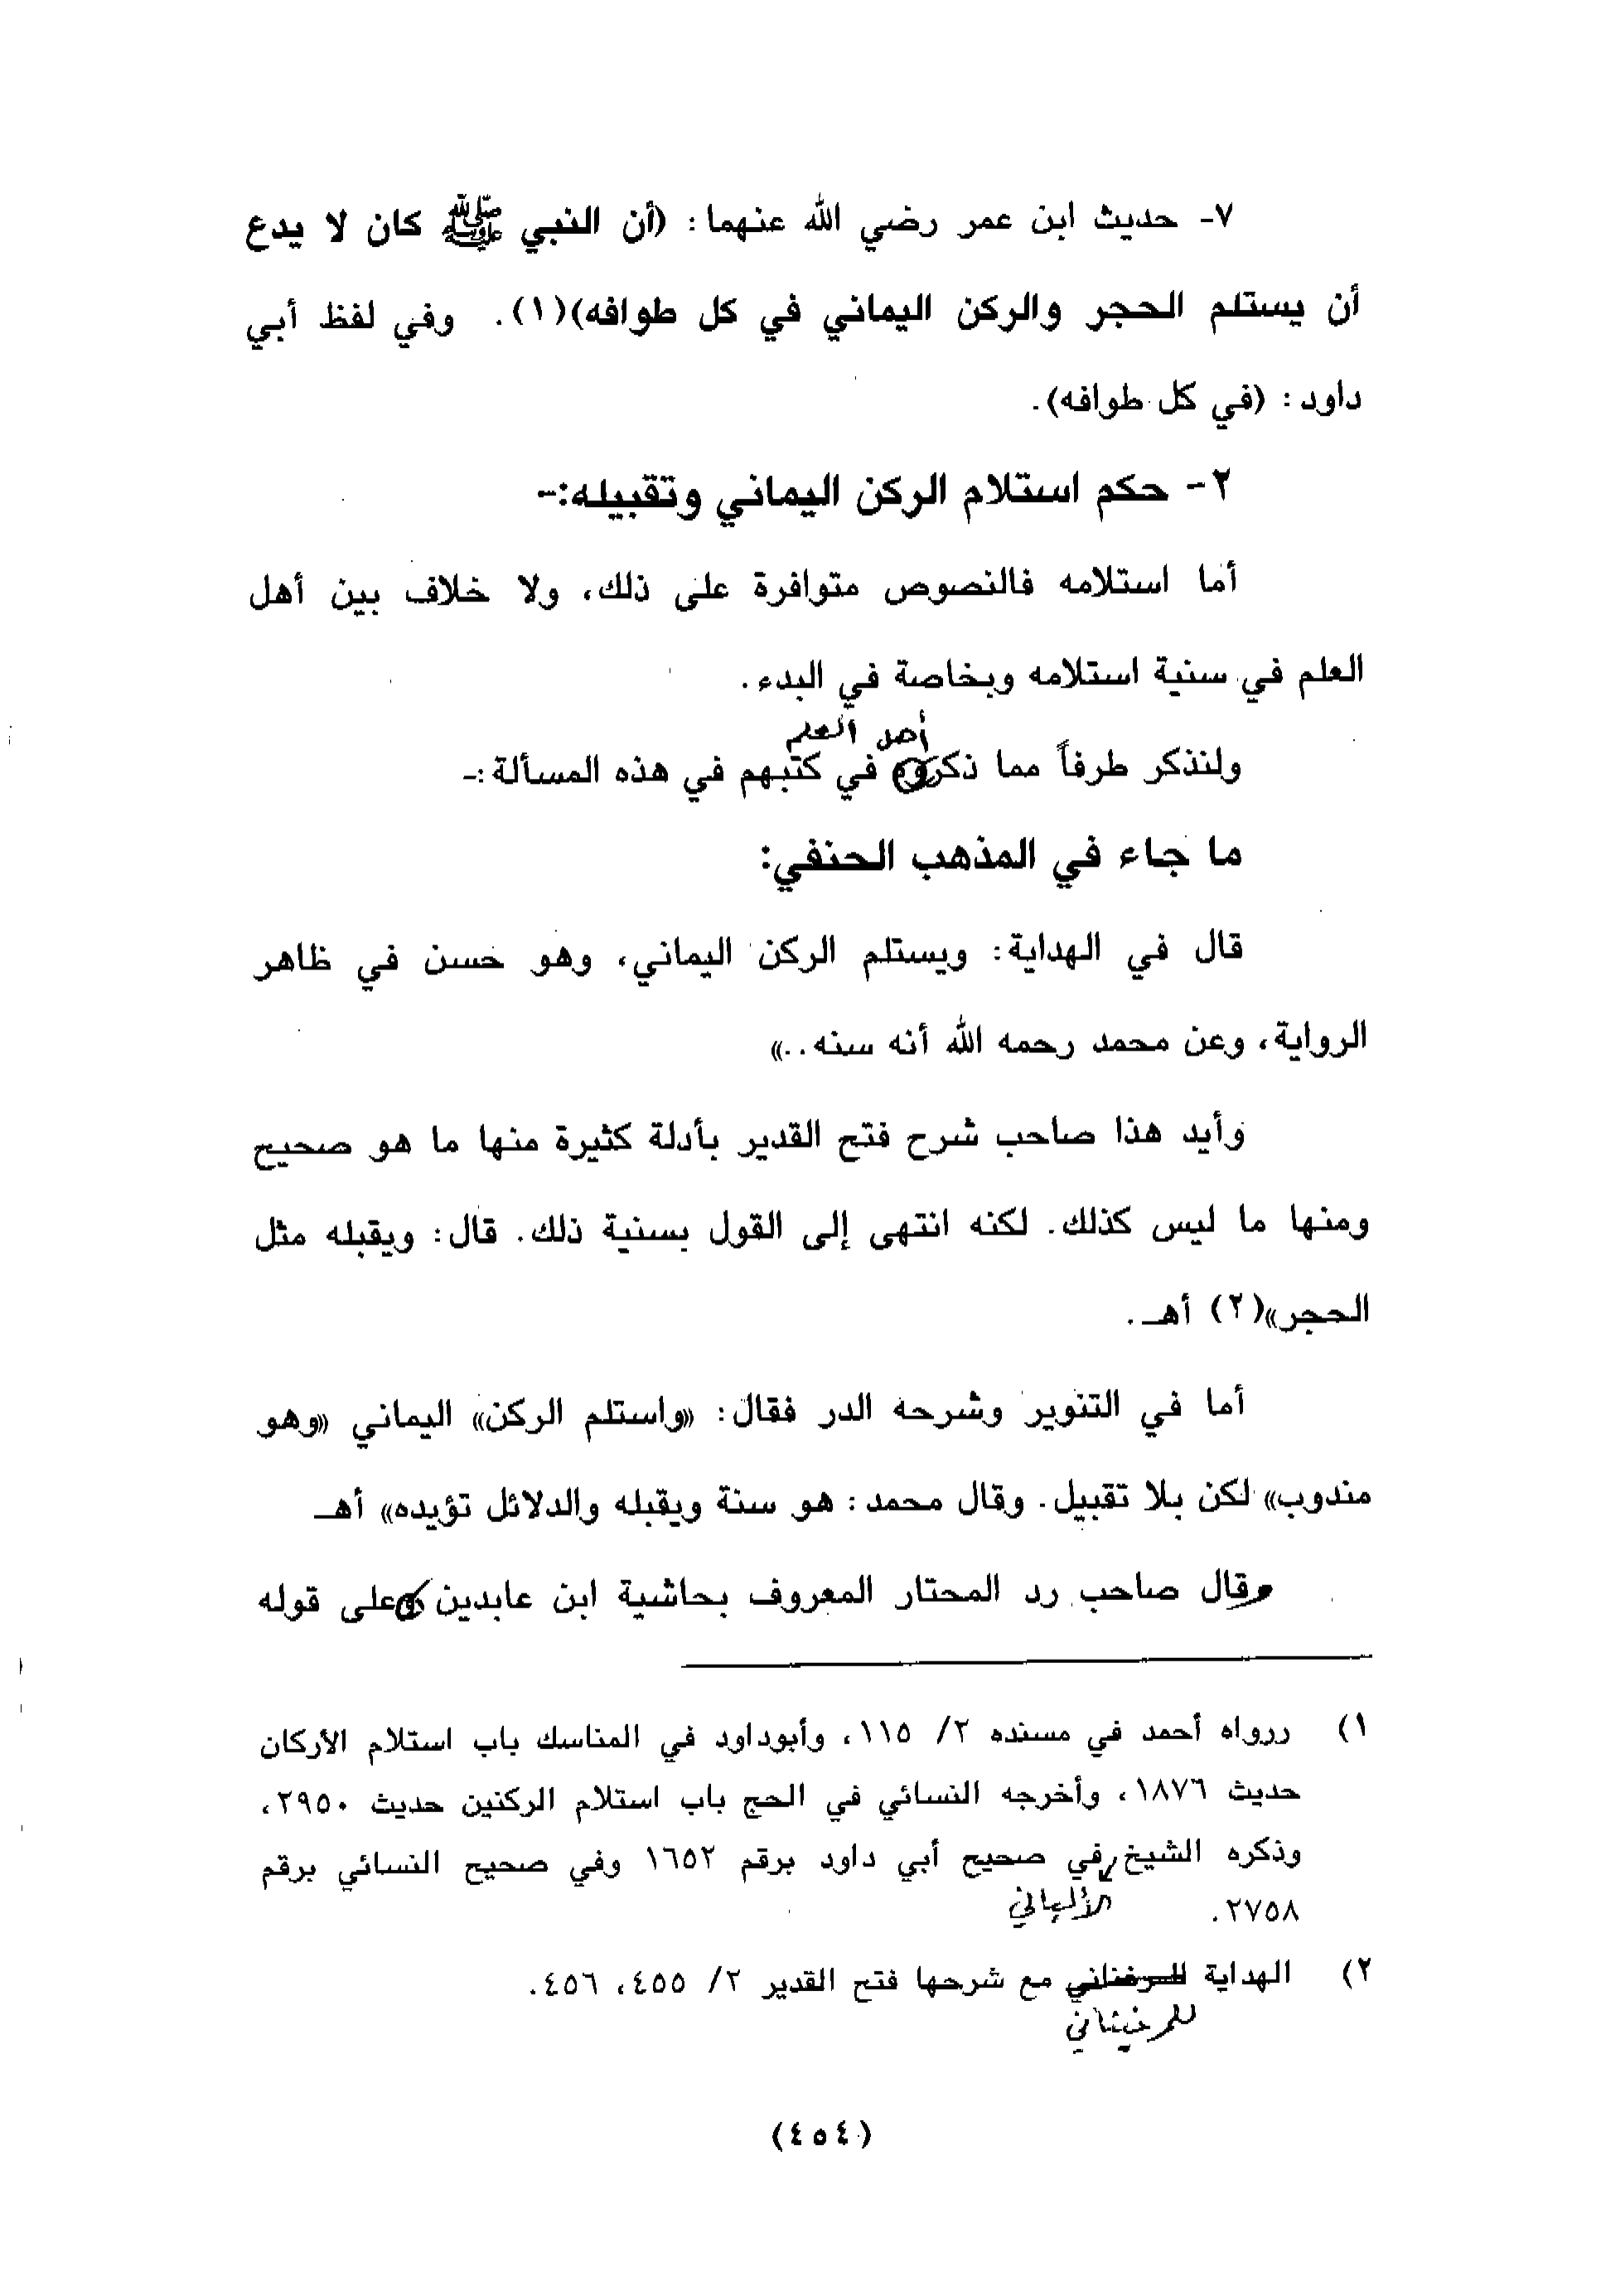 ٧- حديث ابن عمر رضي الله عنهما: (أن النبي ﷺ كان لا يدع
أن يستلم الحجر والركن اليماني في كل طوافه)(١). وفي لفظ أبي
داود: (في كل طوافه).
٢- حكم استلام الركن اليماني وتقبيله:-
أما استلامه فالنصوص متوافرة على ذلك، ولا خلاف بين أهل
العلم في سنية استلامه وبخاصة في البدء.
أهل العلم
ولنذكر طرفاً مما ذكروه في كتبهم في هذه المسألة:-
ما جاء في المذهب الحنفي:
قال في الهداية: ويستلم الركن اليماني، وهو حسن في ظاهر
الرواية، وعن محمد رحمه الله أنه سنه..»
وأيد هذا صاحب شرح فتح القدير بأدلة كثيرة منها ما هو صحيح
ومنها ما ليس كذلك. لكنه انتهى إلى القول بسنية ذلك. قال: ويقبله مثل
الحجر»(٢) أهـ.
أما في التنوير وشرحه الدر فقال: «واستلم الركن» اليماني «وهو
مندوب» لكن بلا تقبيل. وقال محمد: هو سنة ويقبله والدلائل تؤيده» أهـ
وقال صاحب رد المحتار المعروف بحاشية ابن عابدين على قوله
١) ررواه أحمد في مسنده ٢/ ١١٥، وأبوداود في المناسك باب استلام الأركان
حديث ١٨٧٦، وأخرجه النسائي في الحج باب استلام الركنين حديث ٢٩٥٠،
وذكره الشيخ في صحيح أبي داود برقم ١٦٥٢ وفي صحيح النسائي برقم
الألباني
٢٧٥٨.
٢) الهداية للمرغناني مع شرحها فتح القدير ٢/ ٤٥٥، ٤٥٦.
للمرغيناني
(٤٥٤)